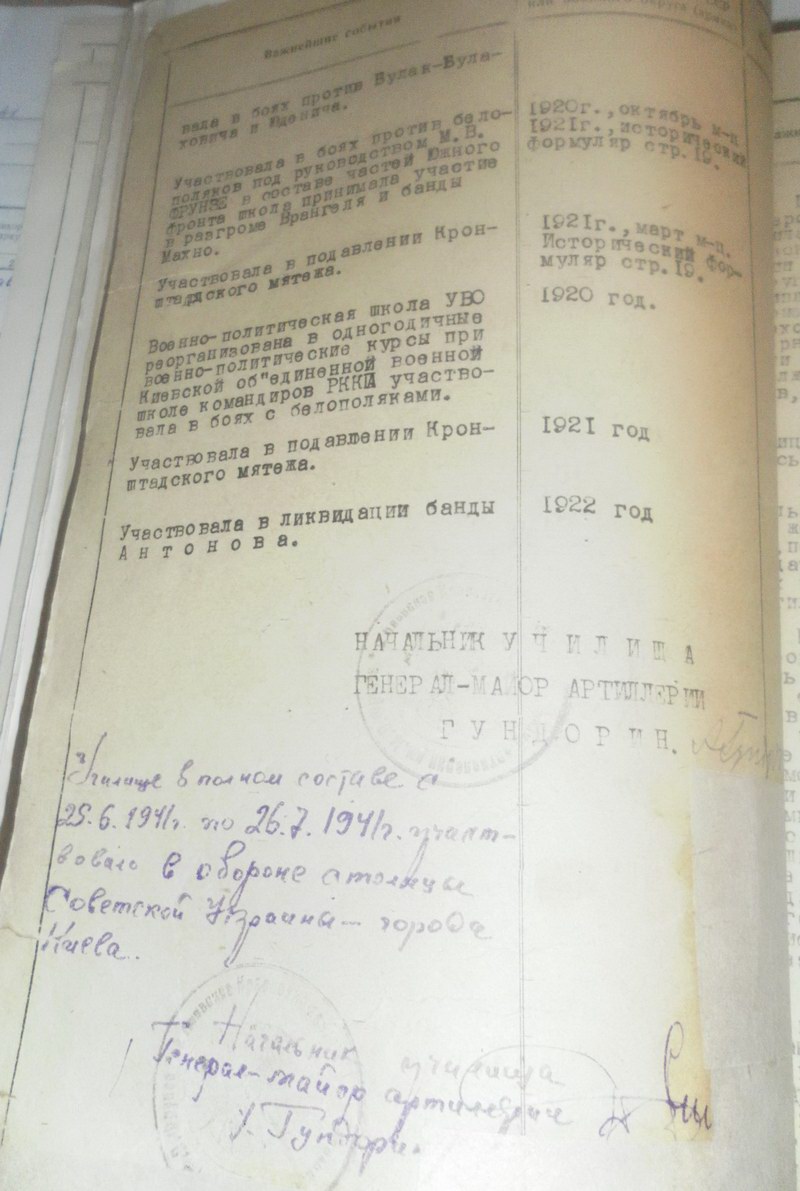 Важнейшие события
или военного округа
вала в боях против Булак-Була-
ховича и Юденича.
Участвовала в боях против бело-
поляков под руководством М.В.
ФРУНЗЕ в составе частей Южного
фронта школа принимала участие
в разгроме Врангеля и банды
Махно.
1920г., октябрь м-ц
1921г., исторический
формуляр стр.19.
Участвовала в подавлении Крон-
штадского мятежа.
1921г., март м-ц.
Исторический фор-
муляр стр.19.
Военно-политическая школа УВО
реорганизована в одногодичные
военно-политические курсы при
Киевской об"единенной военной
школе командиров РККА участво-
вала в боях с белополяками.
1920 год.
Участвовала в подавлении Крон-
штадского мятежа.
1921 год
Участвовала в ликвидации банды
А н т о н о в а.
1922 год
НАЧАЛЬНИК У Ч И Л И Щ А
ГЕНЕРАЛ-МАЙОР АРТИЛЛЕРИИ
Г У Н Д О Р И Н.
Училище в полном составе с
25.6.1941г. по 26.7.1941г. участ-
вовало в обороне столицы
Советской Украины — города
Киева.
Начальник училища
Генерал-майор артиллерии
Гундорин.